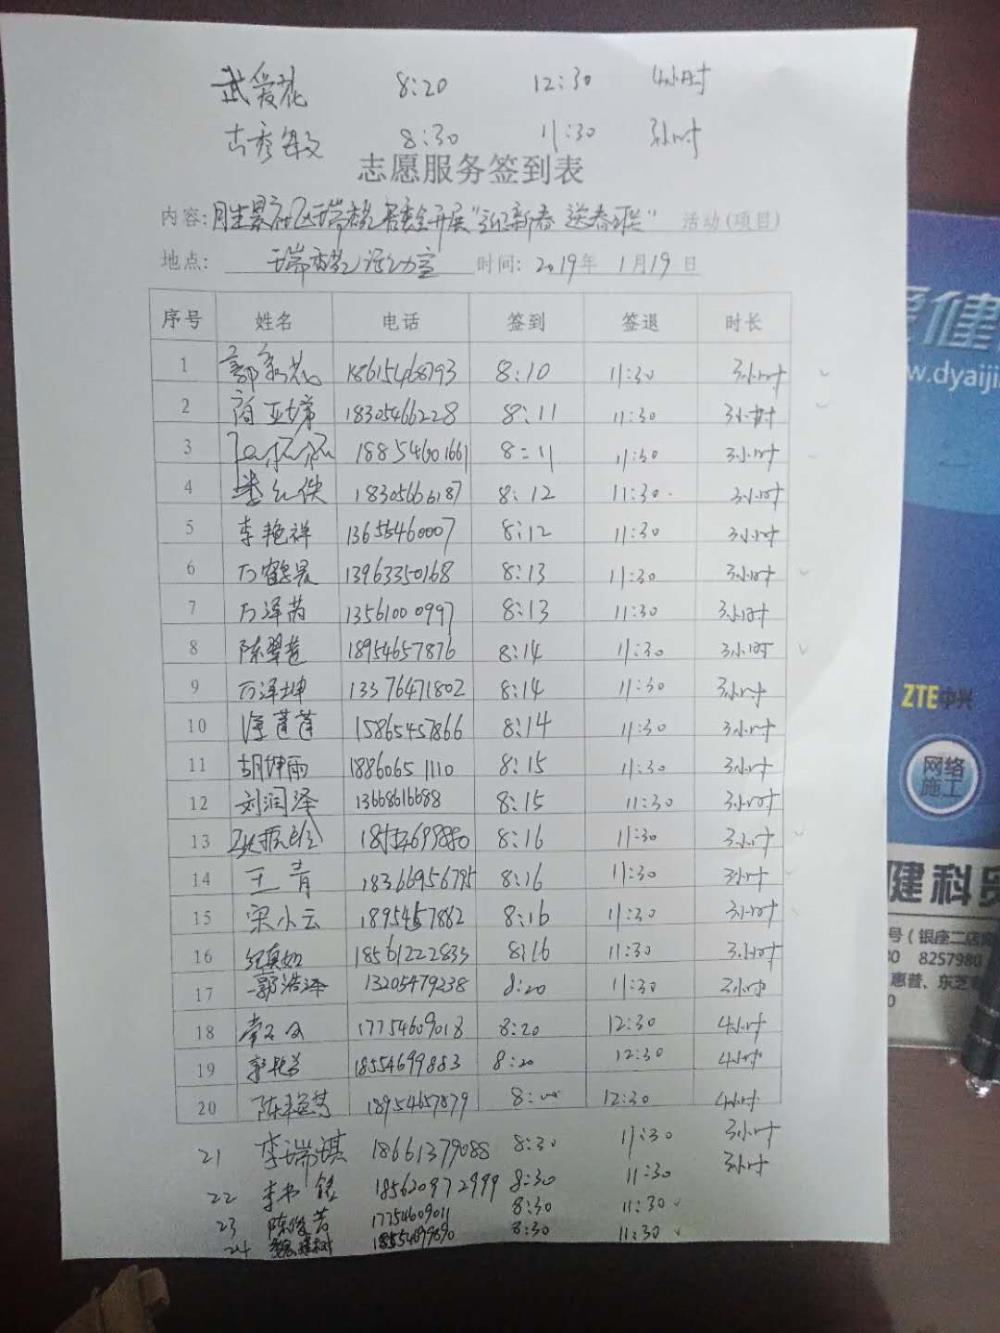 武爱花 8:20 12:30 4小时
古秀敏 8:30 11:30 3小时
志愿服务签到表
内容: 开展"迎新春 送春联" 活动(项目)
地点: 瑞香苑活动室 时间: 2019年 1月19日
序号 姓名 电话 签到 签退 时长
1 18615468793 8:10 11:30 3小时
2 18305466228 8:11 11:30 3小时
3 18854601661 8:11 11:30 3小时
4 8:12 11:30 3小时
5 李艳祥 13655460007 8:12 11:30 3小时
6 万鹤晨 13963350168 8:13 11:30 3小时
7 万泽芮 13561000997 8:13 11:30 3小时
8 陈翠莲 18954657876 8:14 11:30 3小时
9 万泽坤 13376471802 8:14 11:30 3小时
10 15865457866 8:14 11:30 3小时
11 胡坤雨 18860651110 8:15 11:30 3小时
12 刘润泽 13668616688 8:15 11:30 3小时
13 8:16 11:30 3小时
14 王青 18366956795 8:16 11:30 3小时
15 宋小云 8:16 11:30 3小时
16 纪真如 18561222833 8:16 11:30 3小时
17 郭浩泽 13205479238 8:20 11:30 3小时
18 17754609018 8:20 12:30 4小时
19 18554699883 8:20 12:30 4小时
20 18954657879 8: 12:30 4小时
21 李瑞琪 18661379088 8:30 11:30 3小时
22 18562097299 8:30 11:30 3小时
23 陈俊芳 17754609011 8:30 11:30
24 8:30 11:30
健
w.dyaiji
ZTE中兴
网络
施工
健科贸
号(银座二店
8257980
惠普、东芝